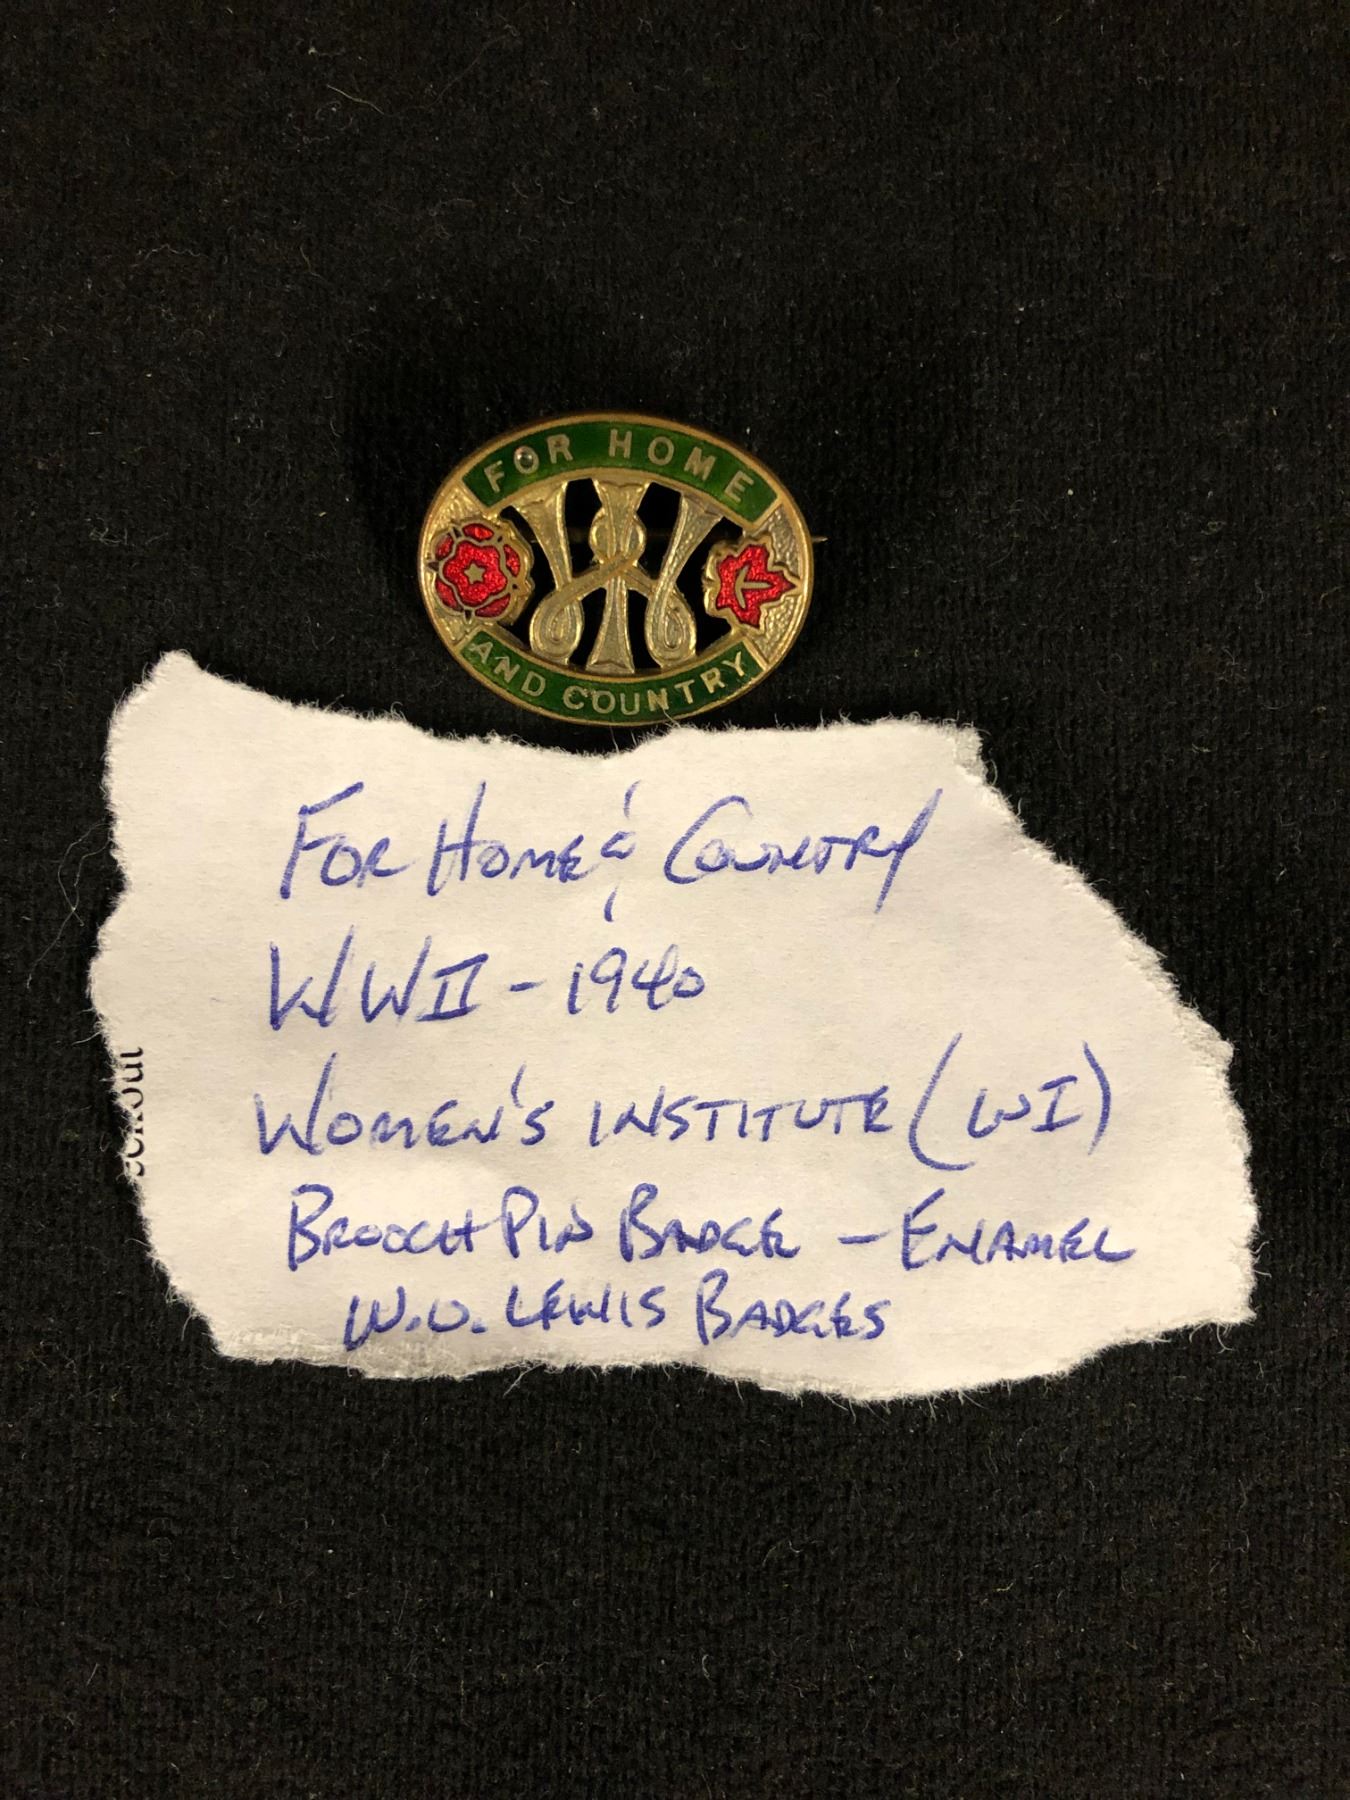 FOR HOME
W
AND COUNTRY
FOR HOME & COUNTRY
WWII - 1940
WOMEN'S INSTITUTE (WI)
BROOCH PIN BADGE - ENAMEL
W.O. LEWIS BADGES